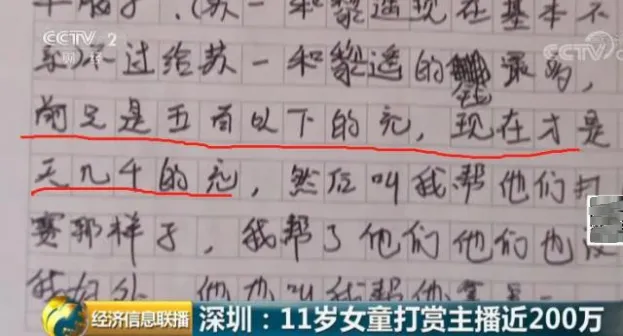 CCTV 2
财经
CCTV
(苏一和黎遥现在基本不
不过给苏一和黎遥的钱最多,
前足是五百以下的充,现在才是
天几千的充,然后叫我帮他们打
赛那样子,我帮了他们他们也没
我好处,他也叫我帮他
经济信息联播
深圳:11岁女童打赏主播近200万